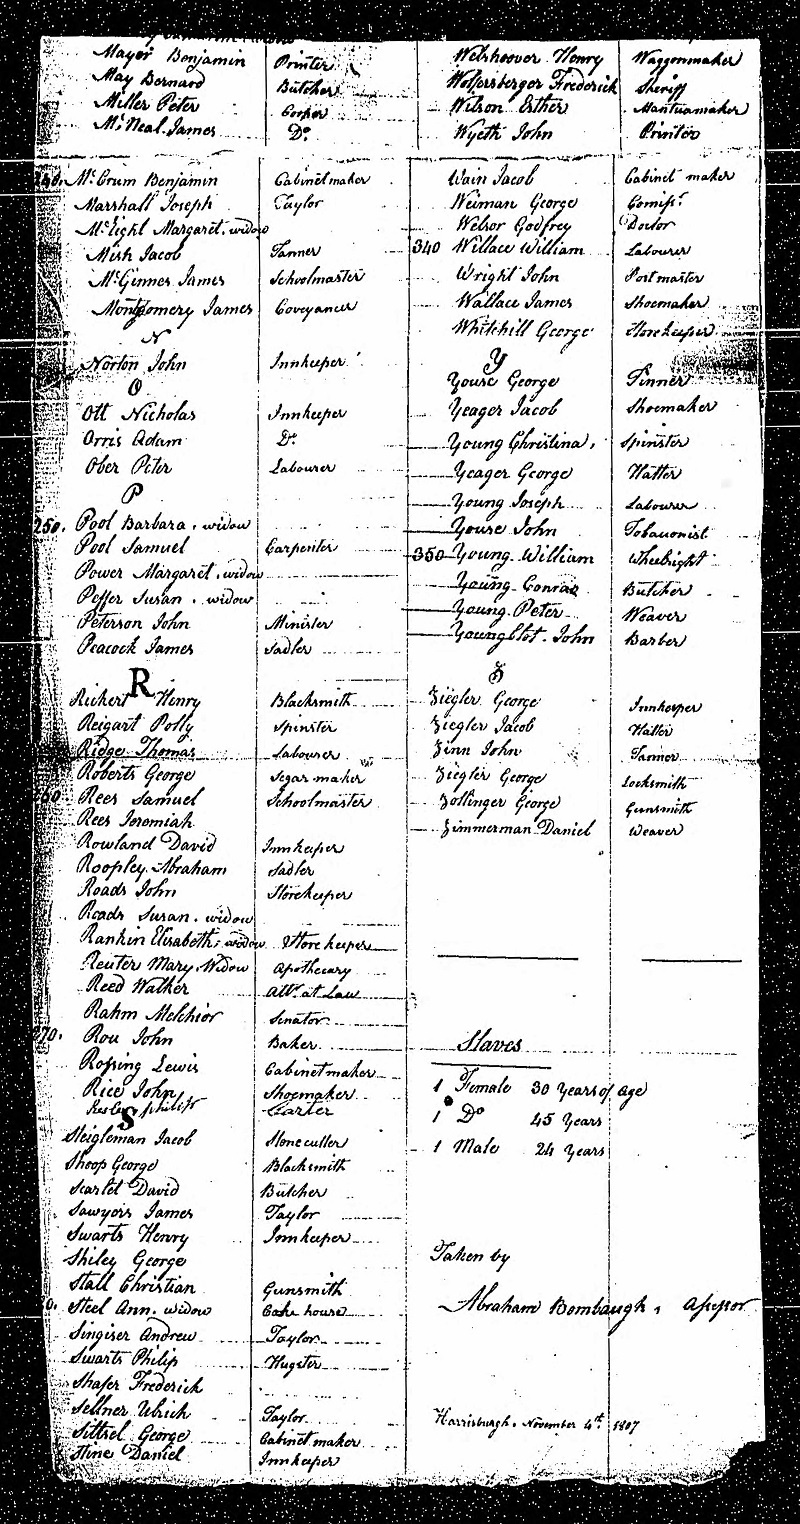 Mayer Benjamin Printer
May Bernard Butcher
Miller Peter Cooper
McNeal James Do
McCrum Benjamin Cabinetmaker
Marshall Joseph Taylor
Margaret, widow
Mish Jacob Tanner
McGinnes James Schoolmaster
Montgomery James Coveyancer
N
Norton John Innkeeper
O
Ott Nicholas Innkeeper
Orris Adam Do
Ober Peter Labourer
P
250. Pool Barbara, widow
Pool Samuel Carpenter
Power Margaret, widow
Peffer Susan, widow
Peterson John Minister
Peacock James Sadler
R
Richert Henry Blacksmith
Reigart Polly Spinster
Ridge Thomas Labourer
Roberts George Segar maker
Rees Samuel Schoolmaster
Rees Jeremiah
Rowland David Innkeeper
Roopley Abraham Sadler
Roads John Storekeeper
Roads Susan, widow
Rankin Elisabeth, widow Store keeper
Reuter Mary, Widow Apothecary
Reed Walker Atty at Law
Rahm Melchior Senator
270. Rou John Baker
Roping Lewis Cabinetmaker
Rice John Shoemaker
philip Carter
S
Steigleman Jacob Stonecutter
Shoop George Blacksmith
Scarlet David Butcher
Sawyers James Taylor
Swarts Henry Innkeeper
Shiley George
Stall Christian Gunsmith
Steel Ann, widow Cake house
Singiser Andrew Taylor
Swarts Philip Hugster
Shafer Frederick
Sellner Ulrich Taylor
Sittrel George Cabinetmaker
Stine Daniel Innkeeper
Welshoover Henry Waggonmaker
Wolfersberger Frederick Sheriff
Wilson Esther Mantuamaker
Wyeth John Printer
Wain Jacob Cabinet maker
Weiman George Comissr
Welsor Godfrey Doctor
340 Willace William Labourer
Wright John Postmaster
Wallace James Shoemaker
Whitehill George Storekeeper
Y
Youse George Tinner
Yeager Jacob Shoemaker
Young Christina, Spinster
Yeager George Hatter
Young Joseph Labourer
Youse John Tobaconist
350 Young William Wheelright
Young Conrad Butcher
Young Peter Weaver
Youngblot John Barber
Z
Ziegler George Innkeeper
Ziegler Jacob Hatter
Zinn John Tanner
Ziegler George Locksmith
Zollinger George Gunsmith
Zimmerman Daniel Weaver
Slaves
1 Female 30 Years of Age
1 Do 45 Years
1 Male 24 Years
Taken by
Abraham Bombaugh, Assessor
Harrisburgh, November 4th 1807